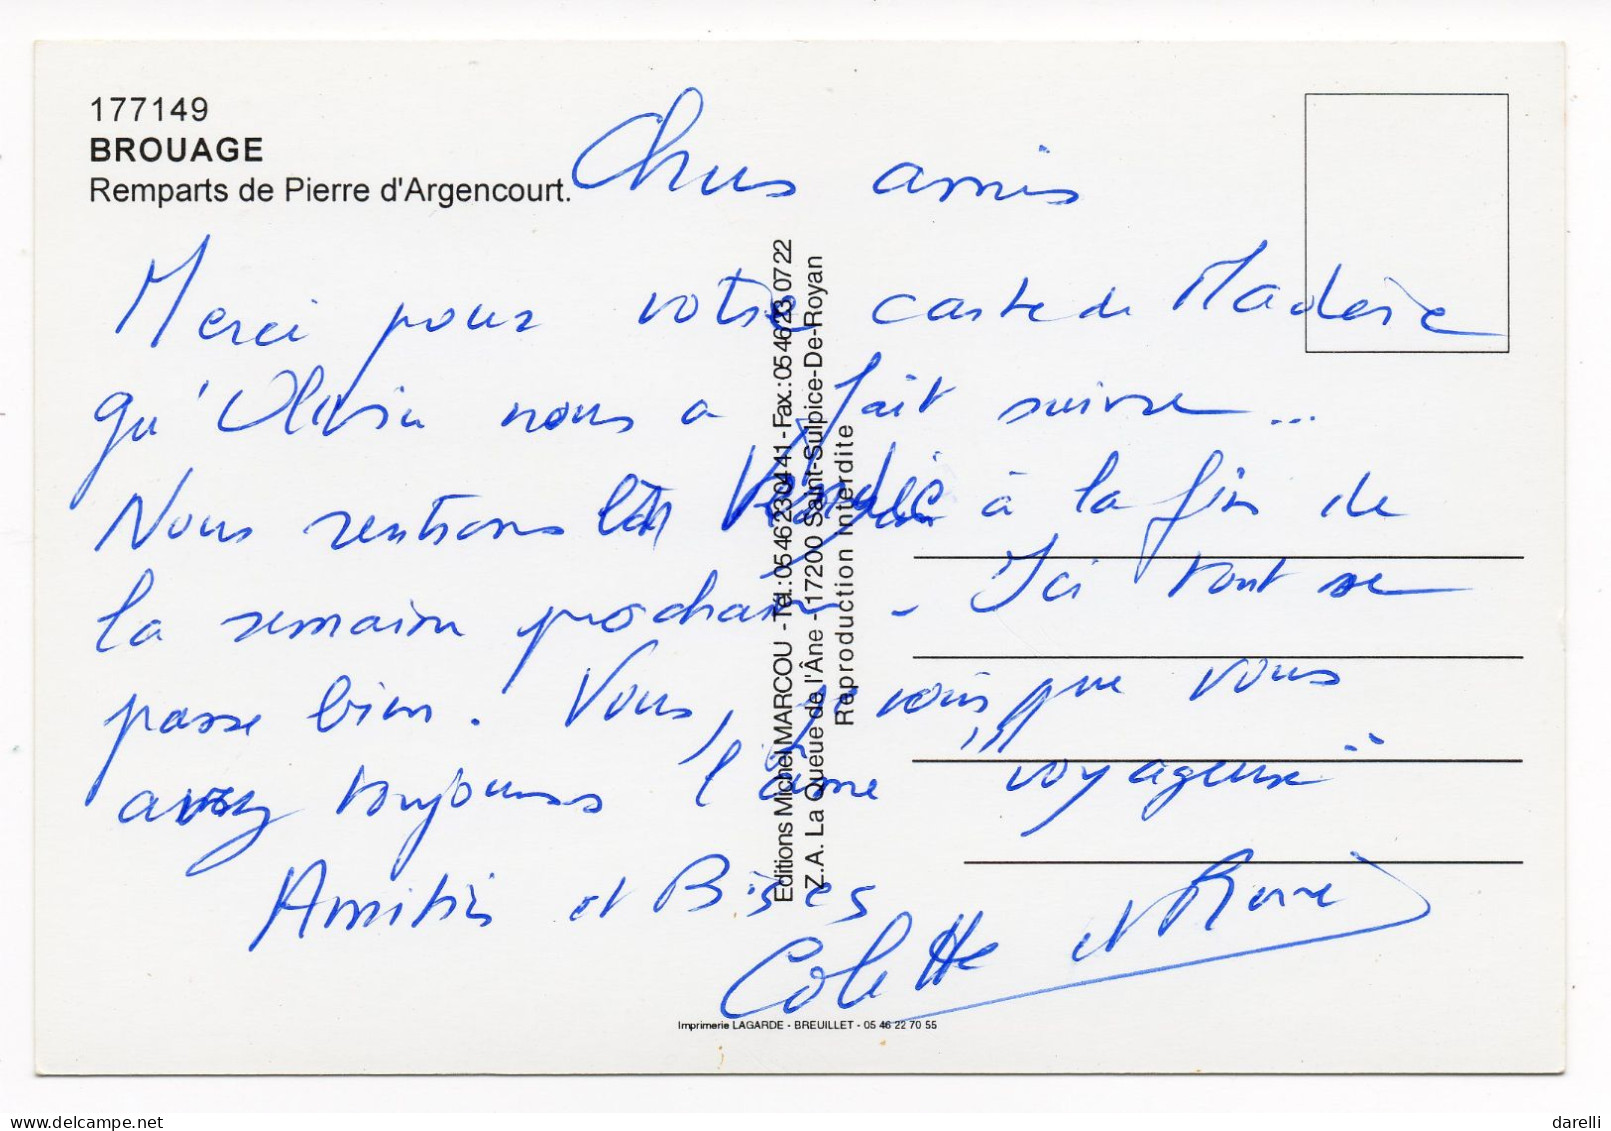 177149
BROUAGE
Remparts de Pierre d'Argencourt.
Chers amis
Merci pour votre carte de Madère
qu'Olivia nous a fait suivre...
Nous rentrons en Vendée à la fin de
la semaine prochaine - Ici tout se
passe bien. Vous, je vois que vous
avez toujours l'âme "voyageuse"
Amitiés et Bises
Colette et
Editions Michel MARCOU - Tél.: 05 46 23 04 41 - Fax.: 05 46 23 07 22
Z.A. La Queue de l'Âne - 17200 Saint-Sulpice-De-Royan
Reproduction Interdite
Imprimerie LAGARDE - BREUILLET - 05 46 22 70 55
darelli